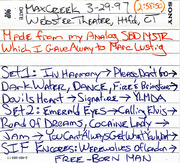 MAX CREEK 3-29-97
Webster Theater, Htfd, CT
Made from my Analog SBD MSTR
Which I Gave Away to Marc Lustig
Set 1: In Harmony → Please Don't Go →
Dark Water, Dance, Fire & Brimstone
Devils Heart → Signature → YLMDA
Set 2: Emerald Eyes → Calling Elvis →
Band Of Dreams, Cocaine Lady →
Jam → You Can't Always Get What You Want →
SIF Encores: Werewolves Of London →
FREE-BORN MAN